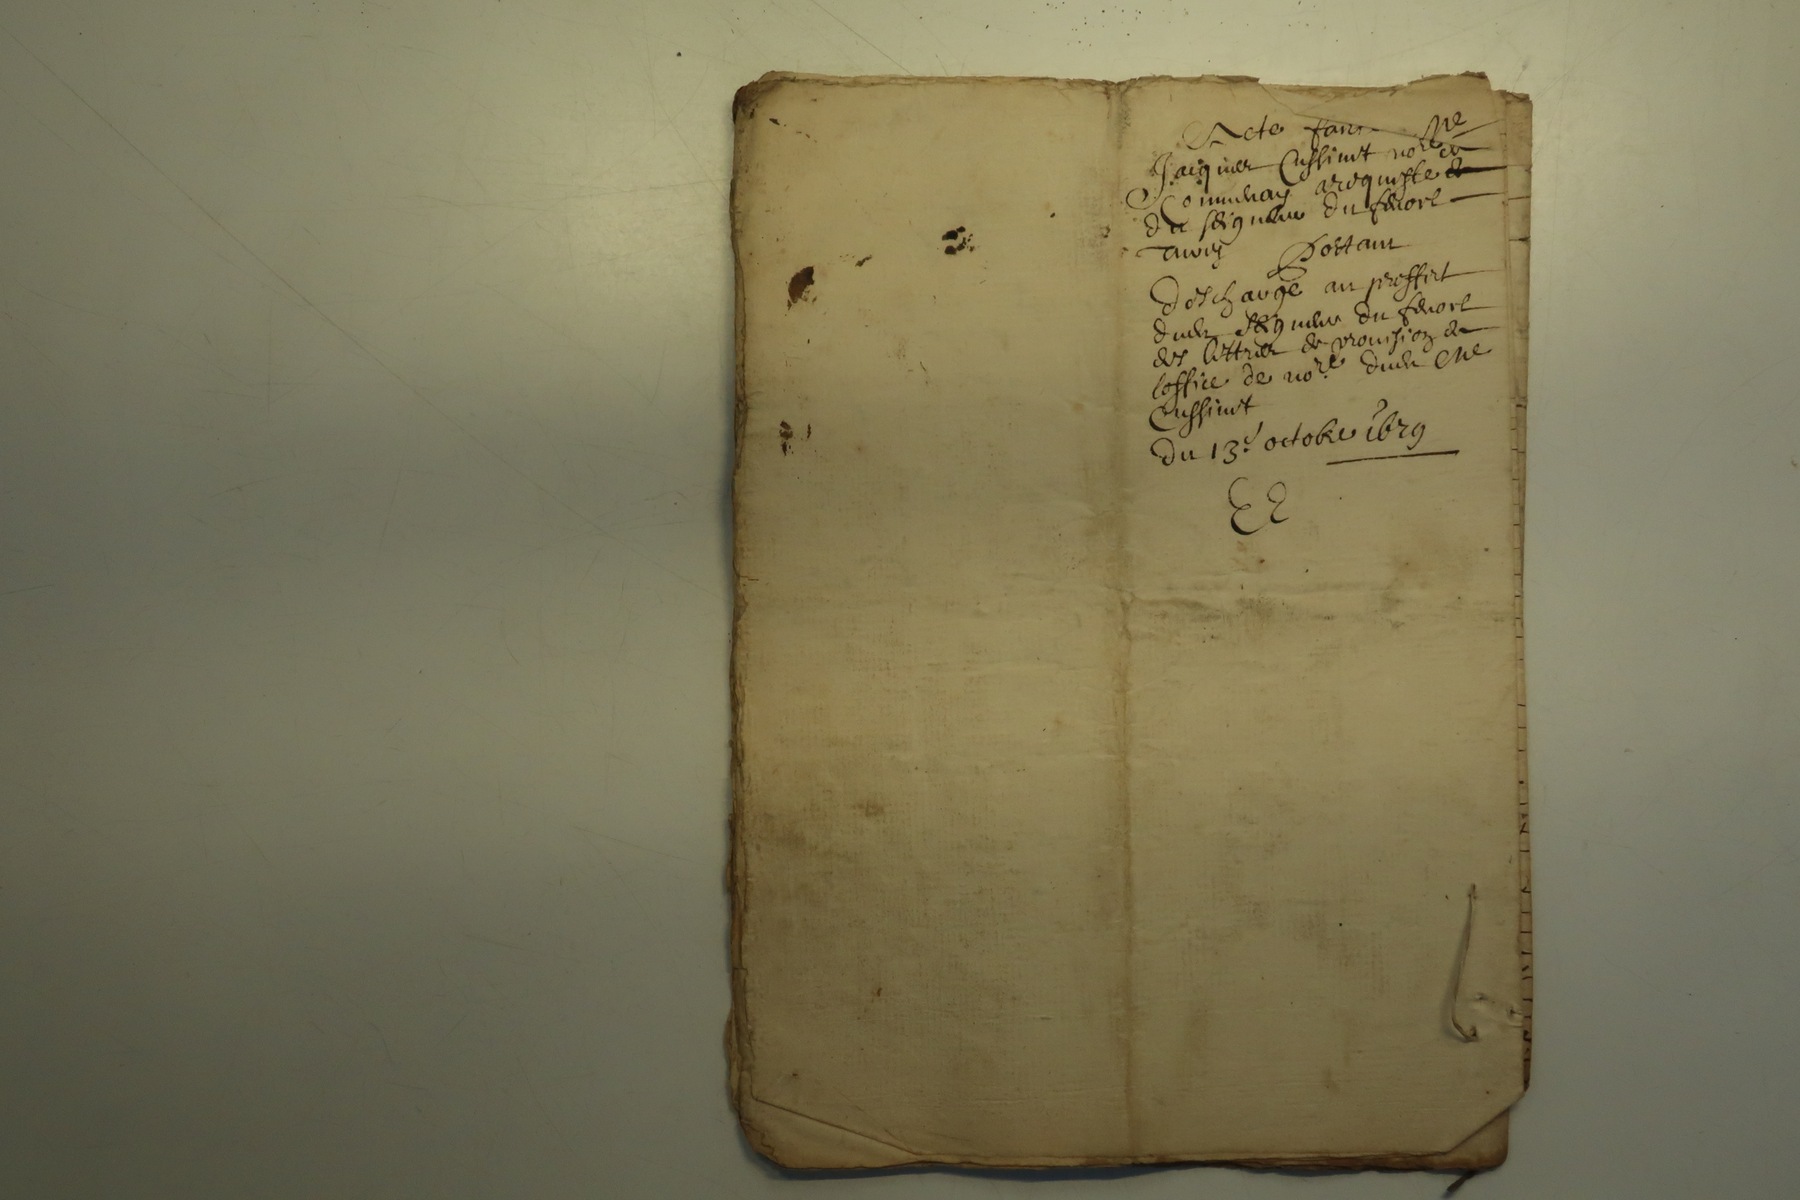 Acte fait Me
Jacques Cussinet no.re de
Commenay a requeste de
du seigneur du
Portant
descharge au proffict
dudit seigneur du
des lettres de provision de
loffice de no.re dudit Me
Cussinet
du 13.e octobre 1679